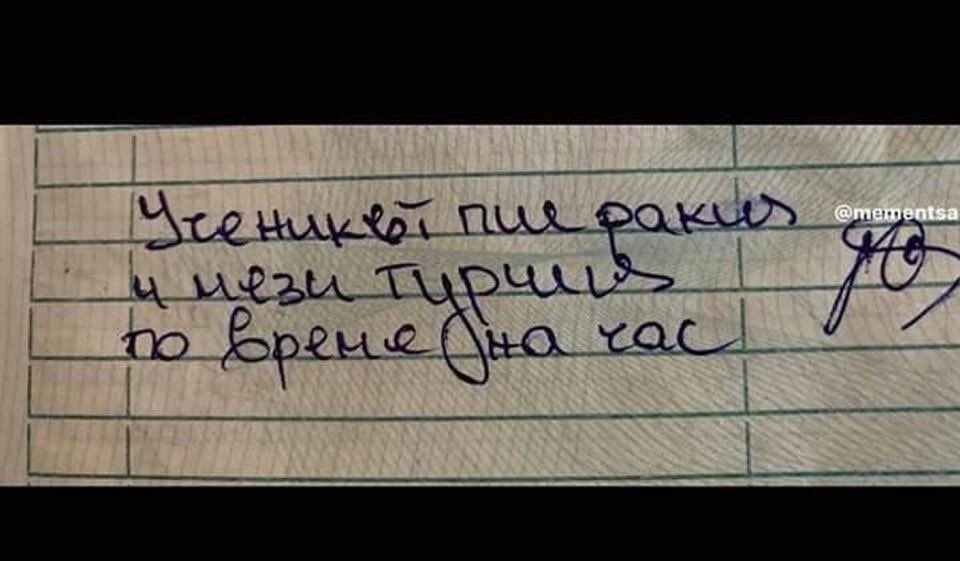 Ученикът пие ракия
@mementsa
и мези туршия
по време на час